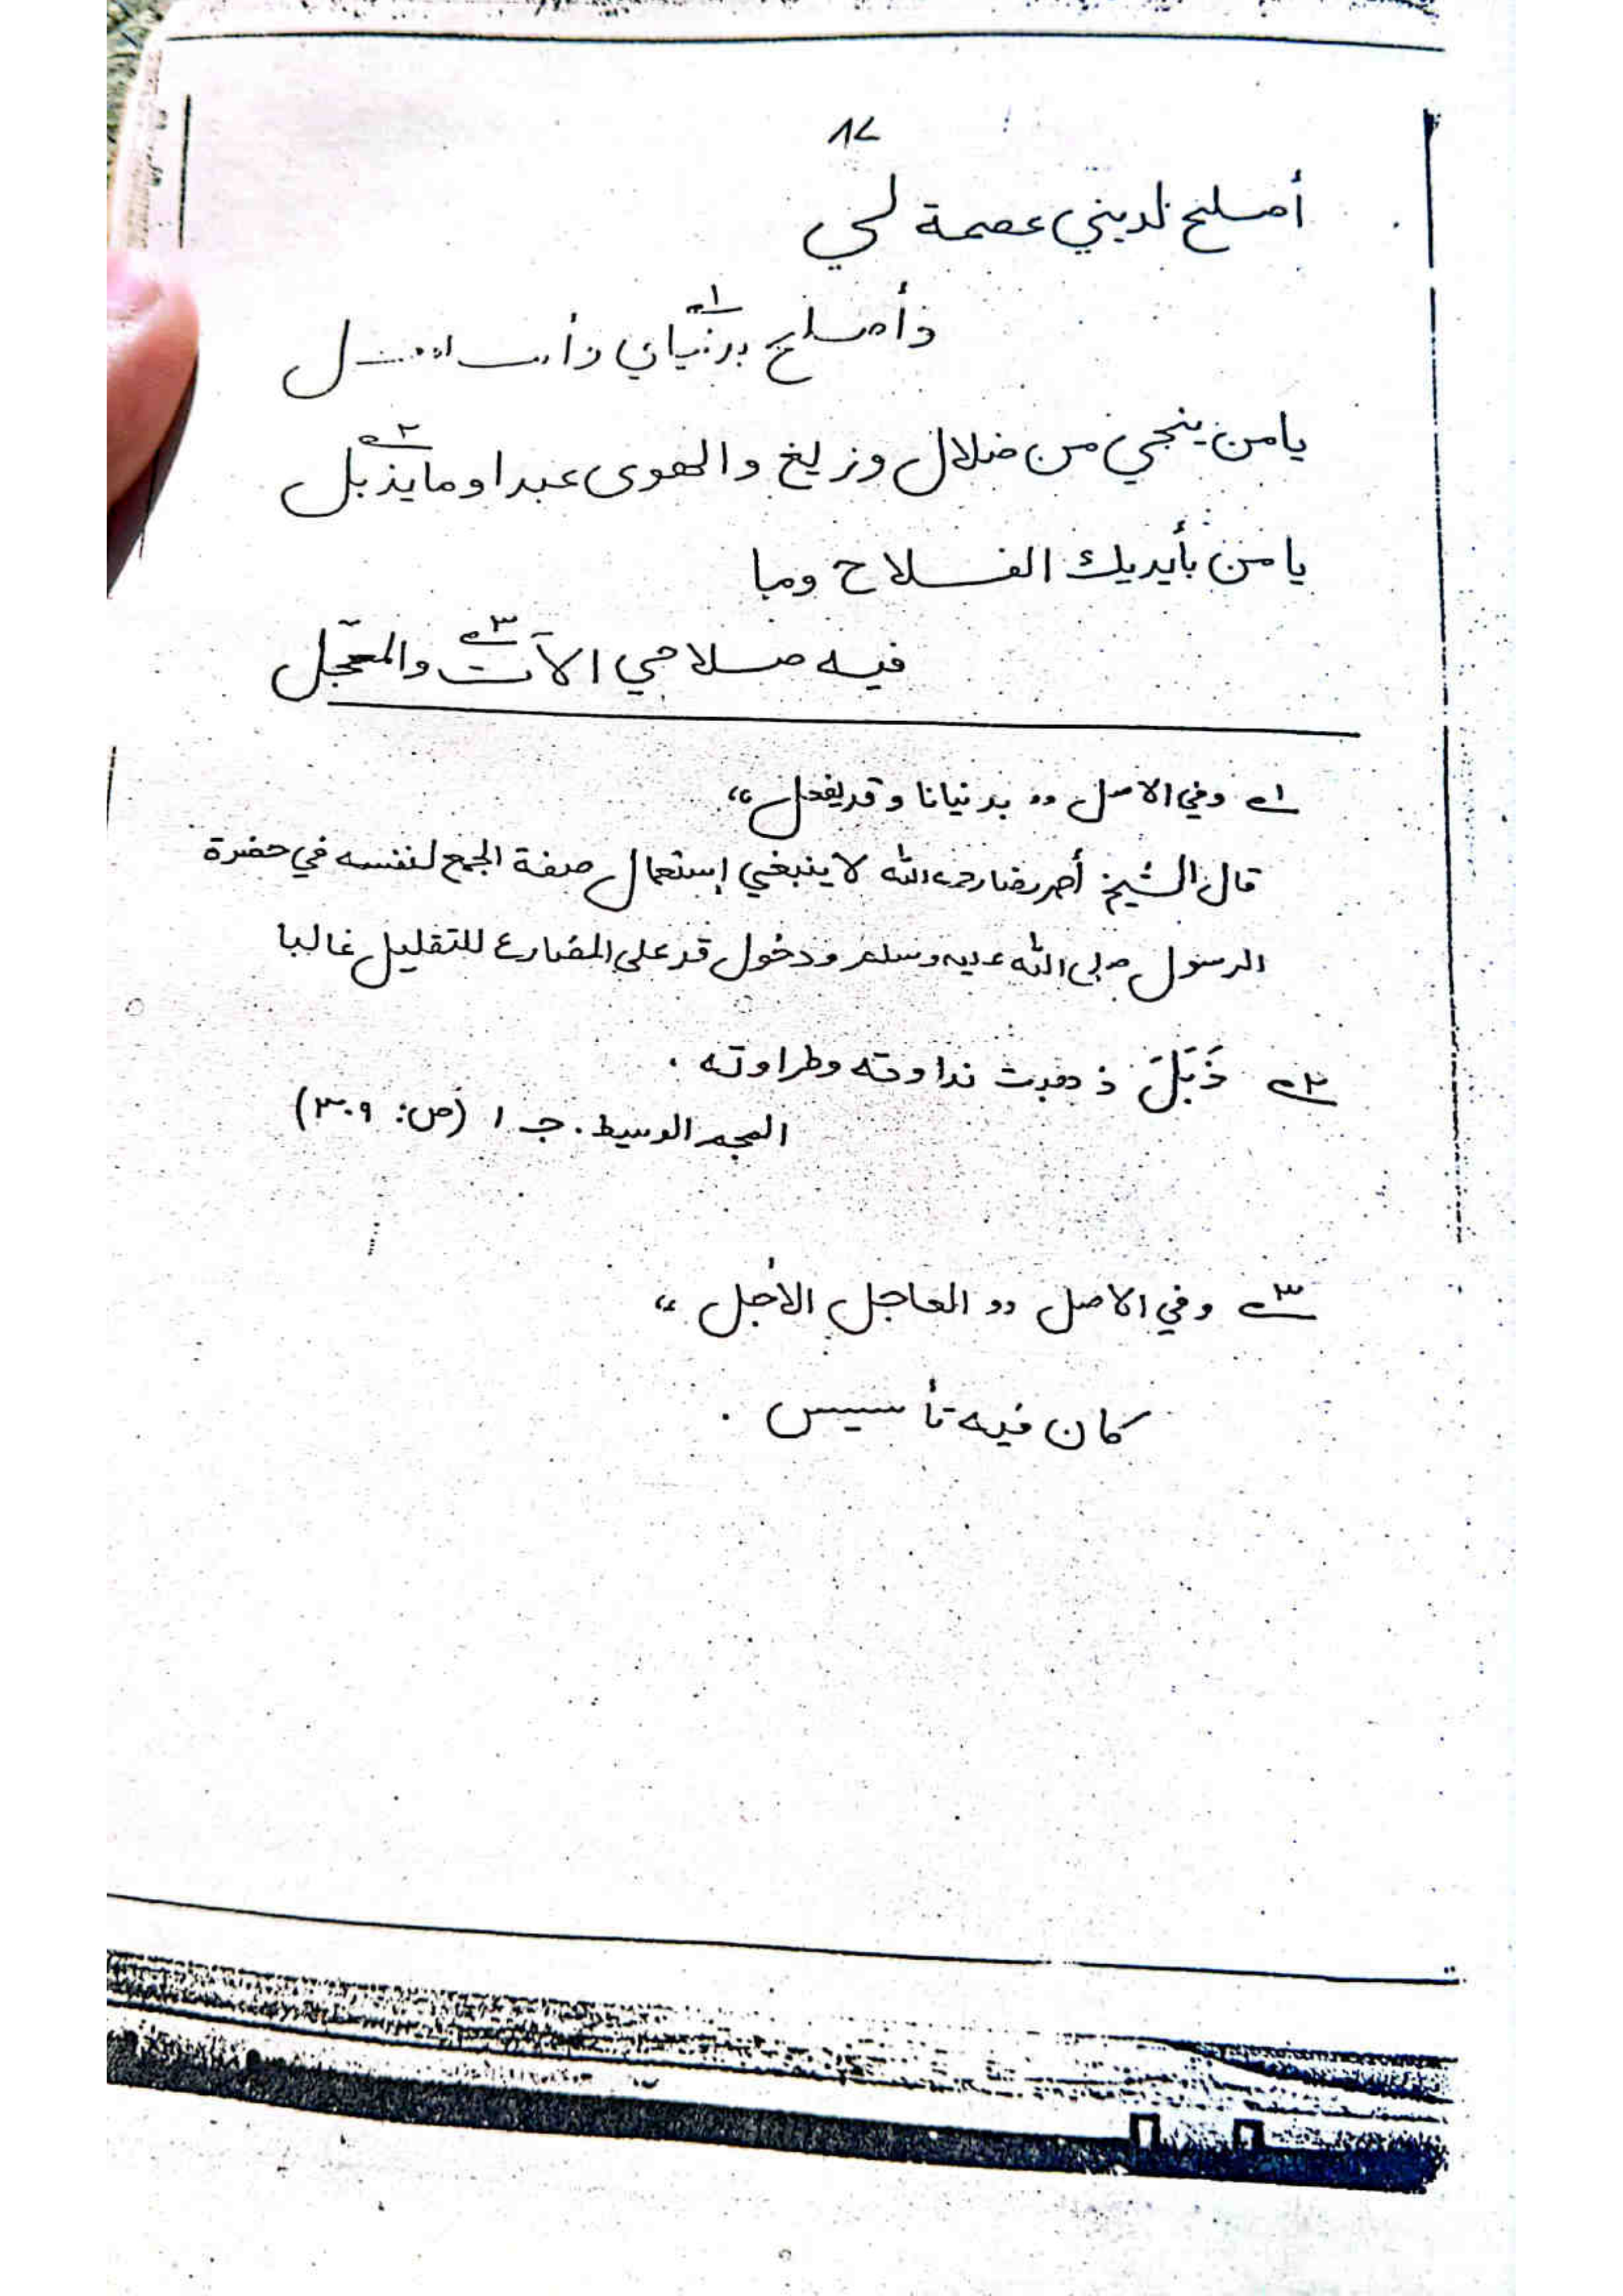 ٨٧
أصلح لديني عصمة لي
وأصلح بدنياي١ وأنت
يا من ينجي من ضلال وزيغ والهوى عبدا وما يذبل٢
يا من بأيديك الفلاح وما
فيه صلاحي الآت٣ والمعجل
١ وفي الاصل ,, بدنيانا وقد يفعل ،،
قال الشيخ أحمد رضا رحمه الله لا ينبغي إستعمال صفة الجمع لنفسه في حضرة
الرسول صلى الله عليه وسلم ودخول قد على المضارع للتقليل غالبا
٢ ذَبَلَ ذهبت نداوته وطراوته .
المعجم الوسيط . جـ ١ (ص: ٣٠٩)
٣ وفي الاصل ,, العاجل الأجل ،،
كان فيه تأسيس .